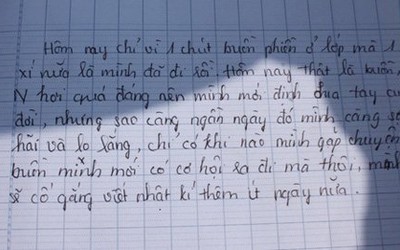 Hôm nay chỉ vì 1 chút buồn phiền ở lớp mà 1
xí nữa là mình đã đi rồi. Hôm nay thật là buồn,
N hơi quá đáng nên mình mới định đưa tay
đời, nhưng sao càng ngay đó mình càng
hãi và lo lắng, chỉ có khi nào mình gặp chuyện
buồn mình mới có cơ hội ra đi mà thôi, mình
sẽ cố gắng viết nhật kí thêm ít ngày nữa.